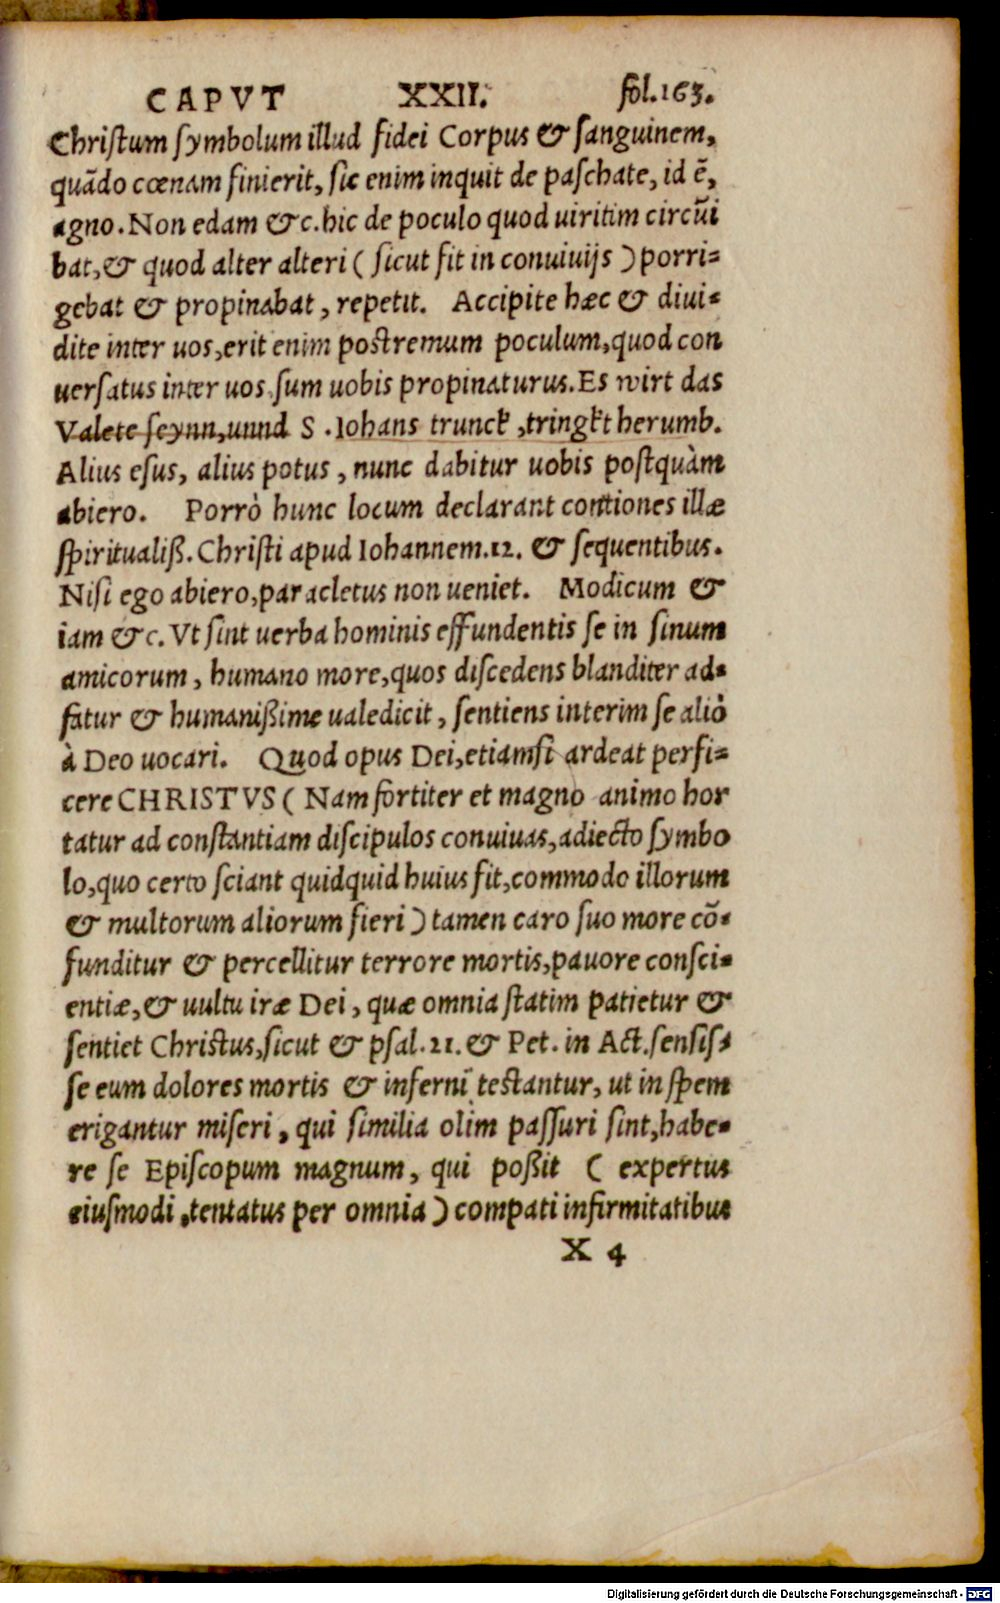 CAPVT XXII. fol.163.
Christum ſymbolum illud fidei Corpus & ſanguinem,
quādo cœnam finierit, ſic enim inquit de paſchate, id ē,
agno. Non edam &c. hic de poculo quod uiritim circūi
bat, & quod alter alteri ( ſicut fit in conuiuijs ) porri=
gebat & propinabat, repetit. Accipite hæc & diui=
dite inter uos, erit enim poſtremum poculum, quod con
uerſatus inter uos ſum uobis propinaturus. Es wirt das
Valete ſeynn, unnd S . Iohans trunck, tringkt herumb.
Alius eſus, alius potus, nunc dabitur uobis poſtquàm
abiero. Porrò hunc locum declarant contiones illæ
ſpiritualiß. Chriſti apud Iohannem. 12. & ſequentibus.
Niſi ego abiero, paracletus non ueniet. Modicum &
iam &c. Vt ſint uerba hominis effundentis ſe in ſinum
amicorum, humano more, quos diſcedens blanditer ad=
fatur & humanißime ualedicit, ſentiens interim ſe aliò
à Deo uocari. Quod opus Dei, etiamſi ardeat perfi=
cere CHRISTVS ( Nam fortiter et magno animo hor
tatur ad conſtantiam diſcipulos conuiuas, adiecto ſymbo
lo, quo certo ſciant quidquid huius fit, commodo illorum
& multorum aliorum fieri ) tamen caro ſuo more cō=
funditur & percellitur terrore mortis, pauore conſci=
entiæ, & uultu iræ Dei, quæ omnia ſtatim patietur &
ſentiet Chriſtus, ſicut & pſal. 21. & Pet. in Act. ſenſiſ=
ſe eum dolores mortis & inferni teſtantur, ut in ſpem
erigantur miſeri, qui ſimilia olim paſſuri ſint, habe=
re ſe Epiſcopum magnum, qui poßit ( expertus
eiuſmodi, tentatus per omnia ) compati infirmitatibus
X 4
Digitalisierung gefördert durch die Deutsche Forschungsgemeinschaft - DFG